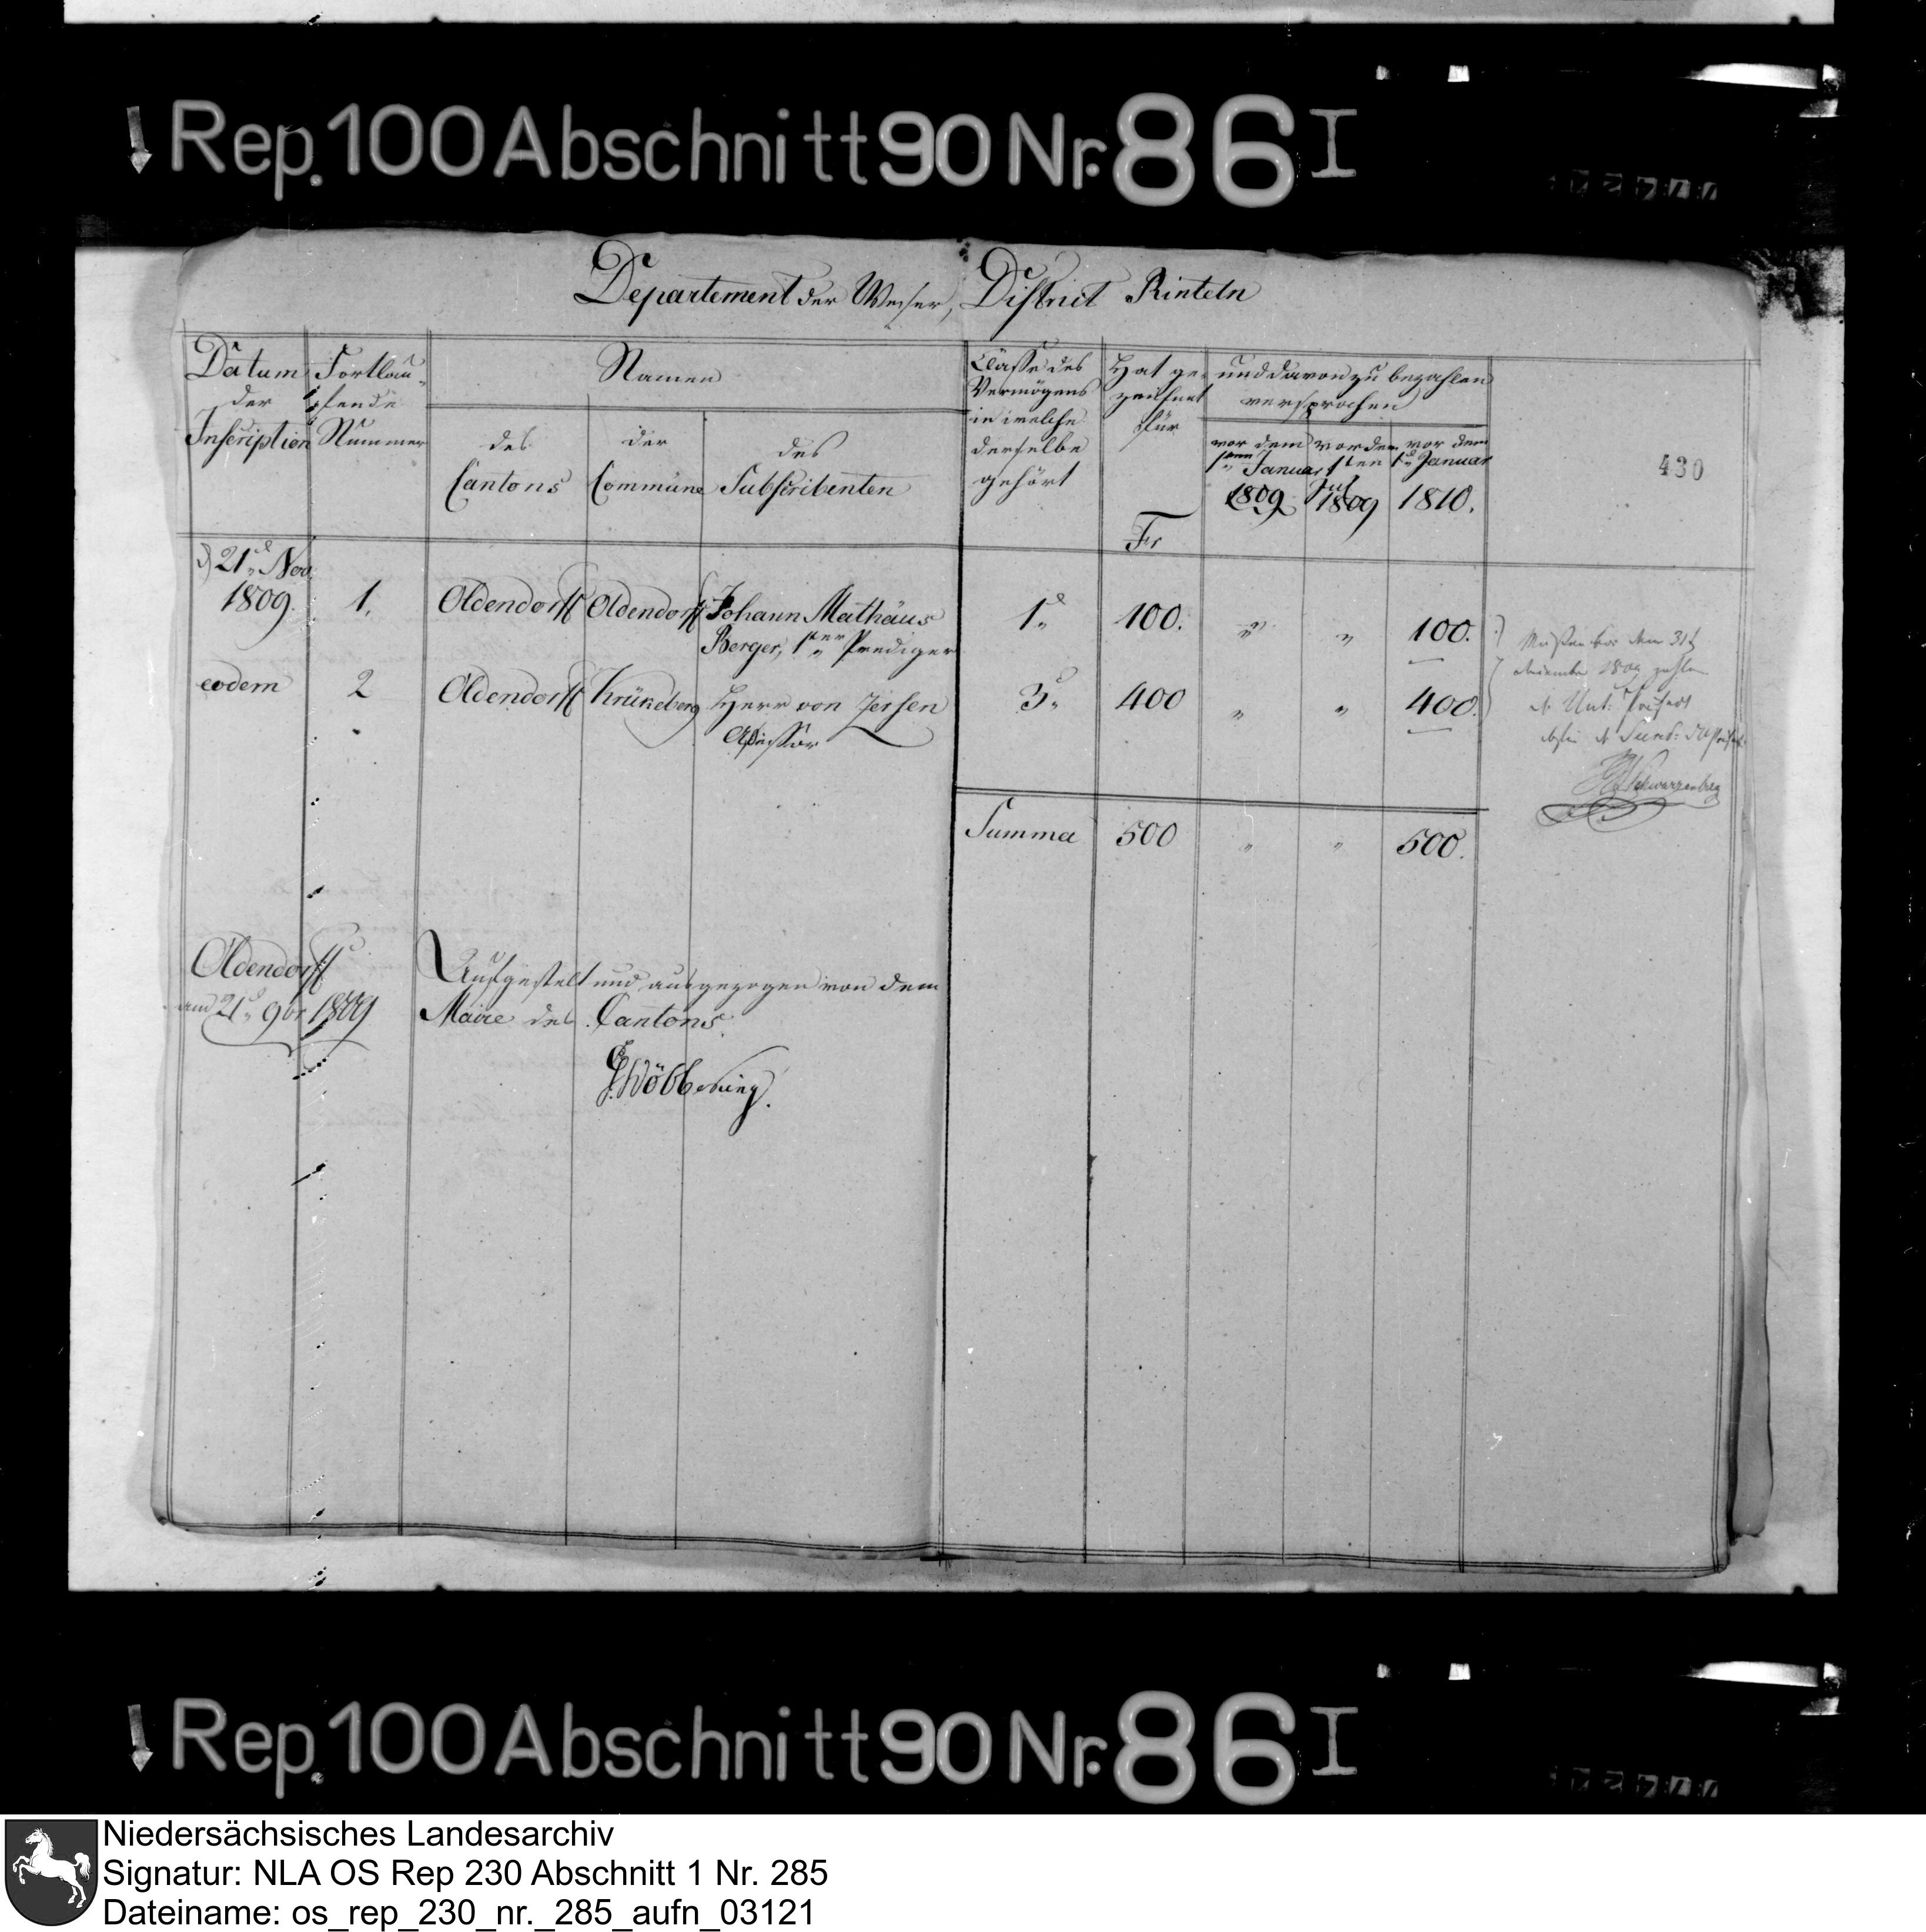 Rep. 100 Abschnitt 90 Nr. 86 I
Departement der Weser, District Rinteln
Datum
der
Inscription
Fortlau-
fende
Nummer
Namen
des
Cantons
der
Commune
des
Subscribenten
Classe des
Vermögens
in welche
derselbe
gehört
Hat ge-
zeichnet
für
Fr
und davon zu bezahlen
versprochen
vor dem
1ten Januar
1809
vor dem
1ten
Jul
1809
vor dem
1t Januar
1810.
430
21t Nov
1809. 1. Oldendorff Oldendorff Johann Mathäus 1t 100. " " 100.
Berger, 1ter Prediger
eodem 2 Oldendorff Krückeberg Herr von Jersen 3t 400 " " 400.
Assessor
vor dem 31t
1809 zahlen
Schwarzenberg
Summa 500 " " 500.
Oldendorff
am 21t 9br 1809
Aufgestelt und ausgezogen von dem
Maire des Cantons.
Wöbbeking.
Rep. 100 Abschnitt 90 Nr. 86 I
Niedersächsisches Landesarchiv
Signatur: NLA OS Rep 230 Abschnitt 1 Nr. 285
Dateiname: os_rep_230_nr._285_aufn_03121